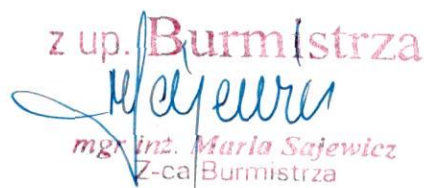 z up. Burmistrza
mgr inż. Maria Sajewicz
Z-ca Burmistrza